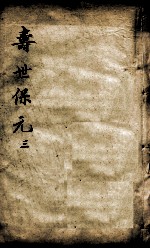 壽世保元 三